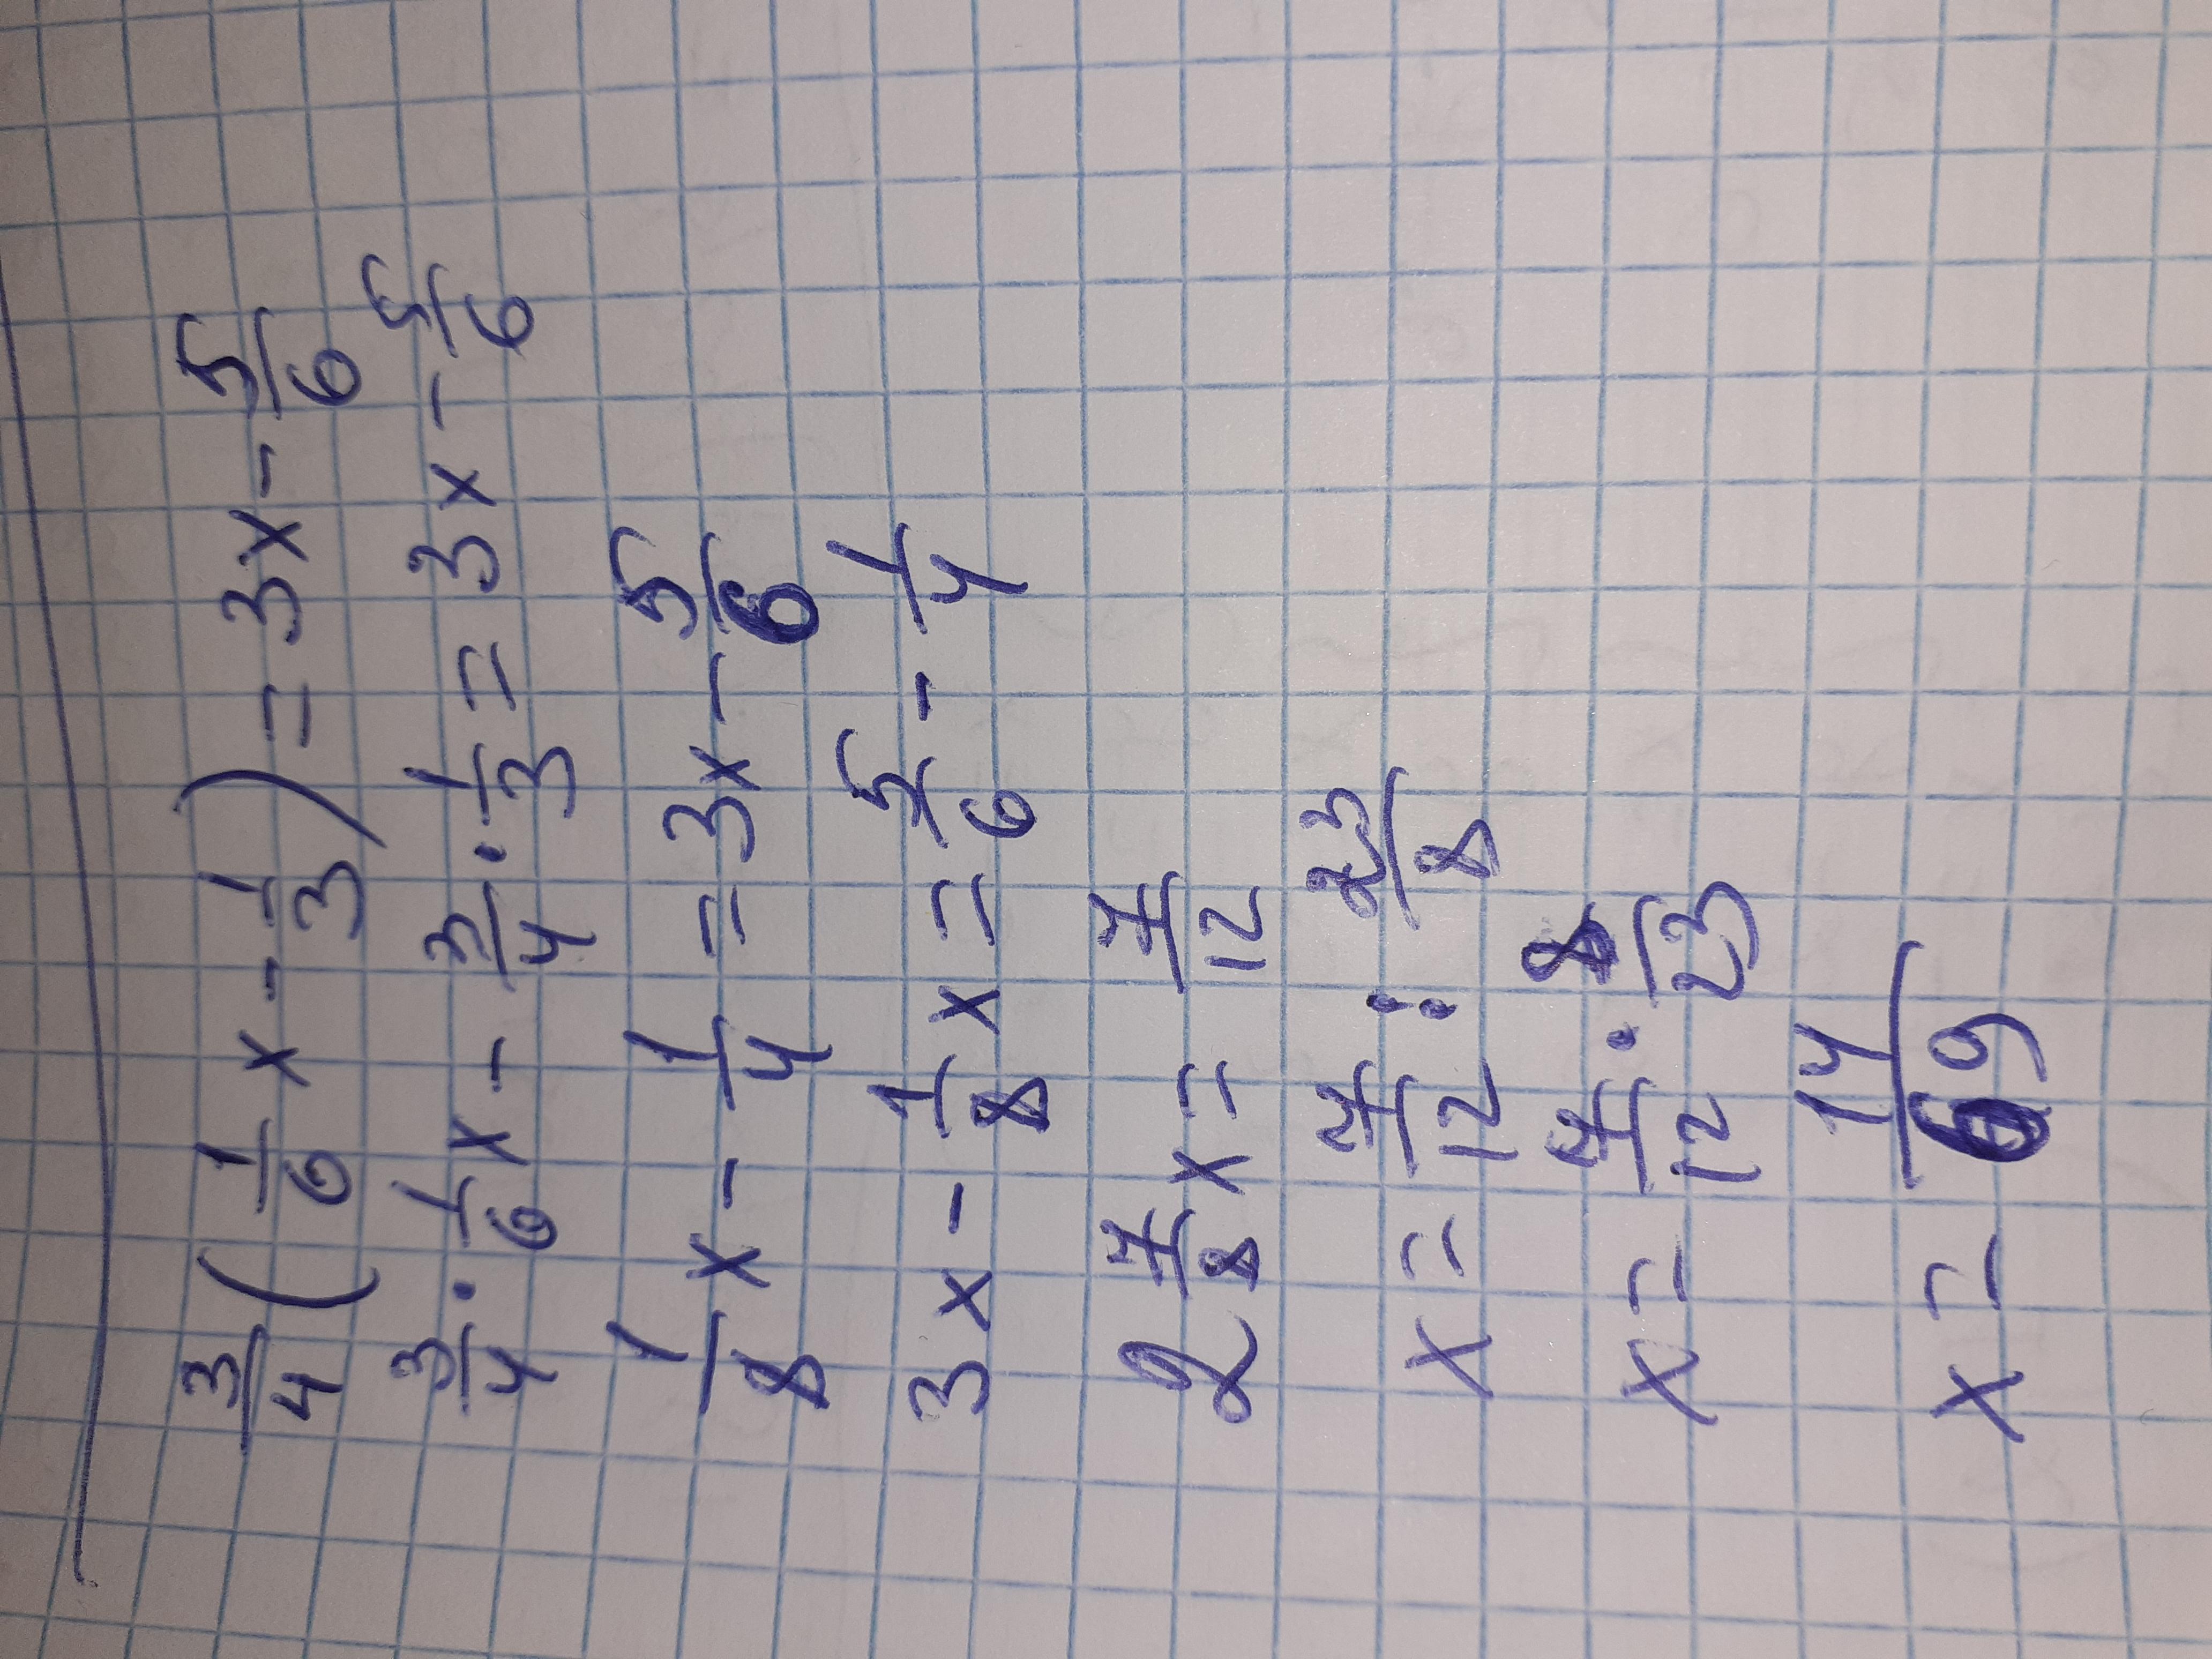 3/4 (1/6 x - 1/3) = 3x - 5/6
3/4 · 1/6 x - 3/4 · 1/3 = 3x - 5/6
1/8 x - 1/4 = 3x - 5/6
3x - 1/8 x = 5/6 - 1/4
2 7/8 x = 7/12
x = 7/12 : 23/8
x = 7/12 · 8/23
x = 14/69